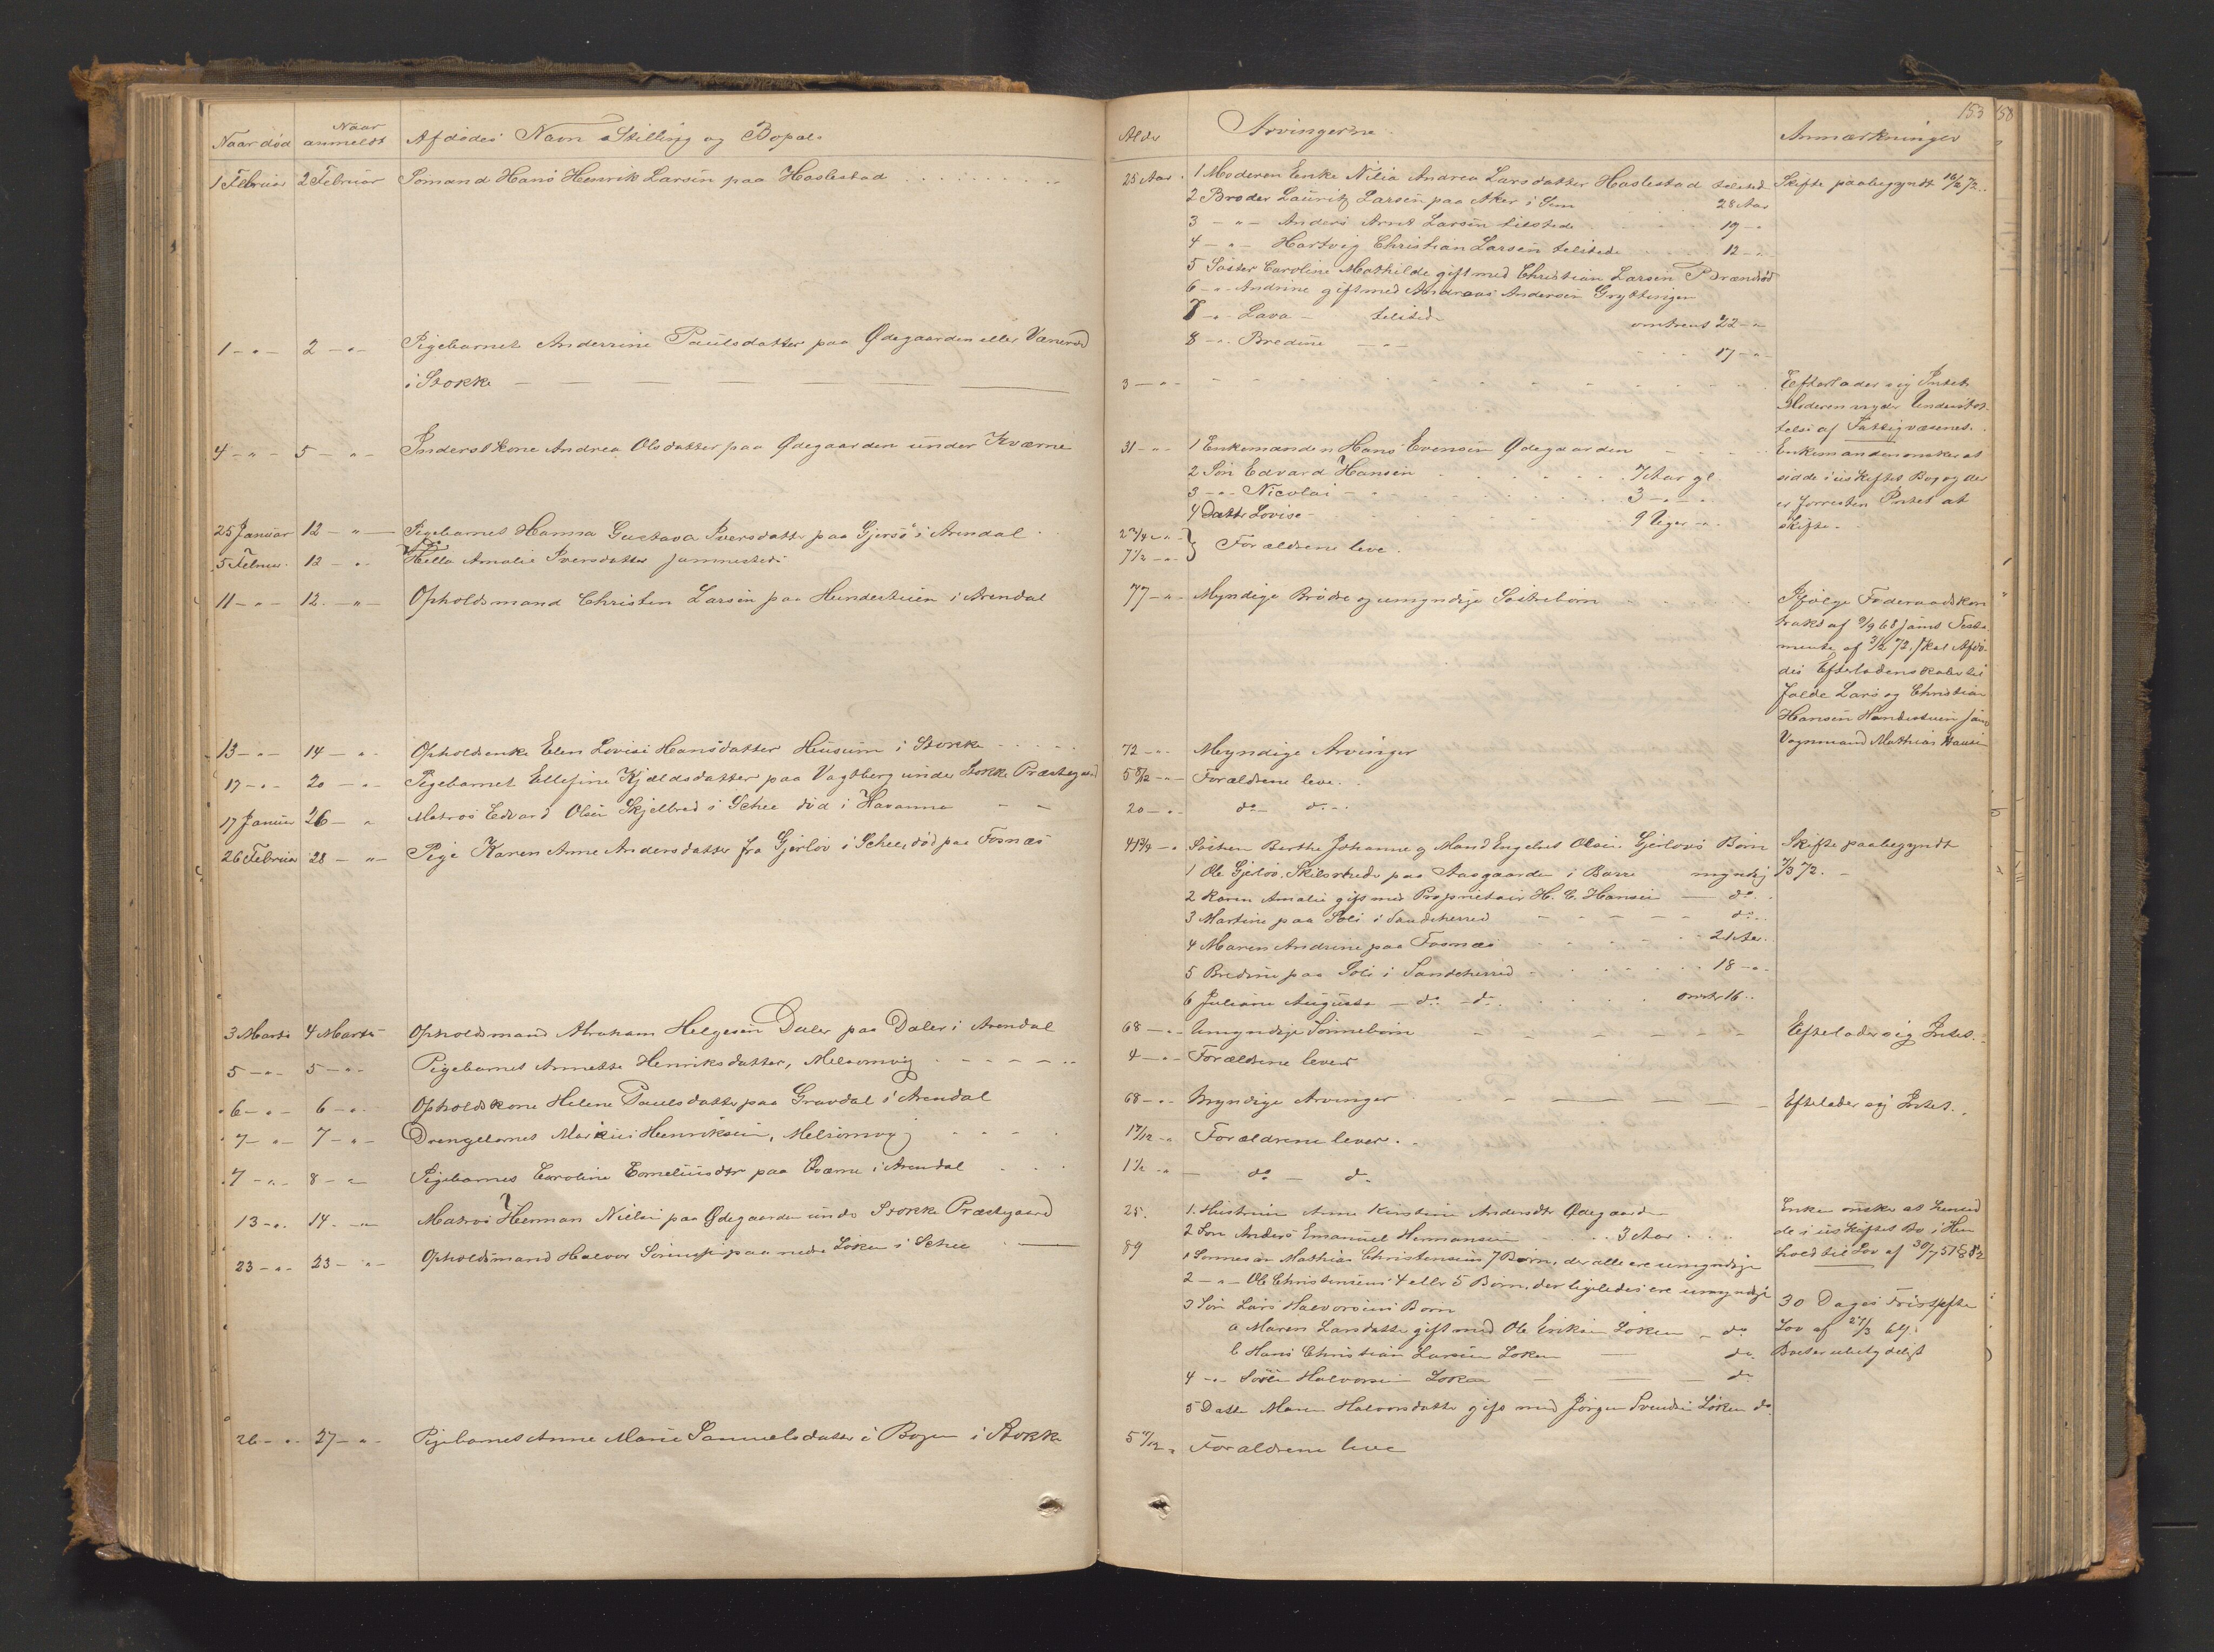 Naar død
Naar anmeldt
Afdødes Navn Stilling og Bopæl.
1 Februar 2 Februar Sømand Hans Henrik Larsen paa Haslestad
1 - " - 2 - " - Pigebarnet Anderine Paulsdatter paa Ødegaarden eller Vanerød
i Stokke
4 - " - 5 - " - Inderst Kone Andrea Olsdatter paa Ødegaarden under Kværne
25 Januar 12 - " - Pigebarnet Hanna Gustava Iversdatter paa Gjersø i Arendal
5 Februar 12 - " - Amalie Iversdatter sammesteds
11 - " - 12 - " - Opholdsmand Christen Larsen paa Hundestuen i Arendal
13 - " - 14 - " - Opholdsenke Elen Lovise Hansdatter Husum i Stokke
17 - " - 20 - " - Pigebarnet Ellefine Kjældsdatter paa Vagtberg under Stokke Præstegaard
17 Januar 26 - " Matros Edvard Olsen Skjelbred i Schee død i Havanna
26 Februar 28 - " - Pige Karen Anne Andersdatter fra Gjerløv i Schee, død paa Fosnæs
3 Marts 4 Marts Opholdsmand Abraham Helgesen Daler paa Daler i Arendal
5 - " - 5 - " - Pigebarnet Annette Henriksdatter, Melsomvig
6 - " - 6 - " - Opholdskone Helene Paulsdatter paa Gravdal i Arendal
7 - " - 7 - " - Drengebarnet Marius Henriksen, Melsomvig
7 - " - 8 - " Pigebarnet Caroline Corneliusdtr paa Qværne i Arendal
13 - " - 14 - " - Matros Herman Nielsen paa Ødegaarden under Stokke Præstegaard
23 - " - 23 - " - Opholdsmand Halvor Sørensen paa nedre Løken i Schee
26 - " - 27 - " - Pigebarnet Anne Marie Samuelsdatter i Bogen i Stokke
153
158
Alder
Arvingerne
Anmærkninger
25 Aar 1 Moderen Enke Nilia Andrea Larsdatter Haslestad tilstede Skifte paabegyndt 16/2 72.
2 Broder Lauritz Larsen paa Aker i Sem 28 Aar
3 - " - Anders Arnt Larsen tilstede 19 - "
4 - " - Hartvig Christian Larsen tilstede 12 - "
5 Søster Caroline Mathilde gift med Christian Larsen Brændsrød
6 - " - Andrine gift med Andreas Andersen Gryttingen
7 - " - Lava - tilstede omtrent 22 - "
8 - " - Bredine - " - 17 - " -
3 - " - Efterlader sig Intet
Moderen nyder Understøt-
telse af Fattigvæsenet.
31 - " - 1 Enkemanden Hans Evensen Ødegaarden Enkemanden ønsker at
2 Søn Edvard Hansen 7 Aar gl sidde i uskiftet Bo og der
3 - " - Nicolai - 3 - " - er forresten Intet at
4 Datter Lovise - 9 Uger - " skifte.
2 3/4 - " -
7 1/2 - " - Forældrene leve.
77 - " - Myndige Brødre og umyndige Søsterbørn Ifølge Føderaadskon
trakt af 9/9 68 samt Testa-
mente af 3/2 72 skal Afdø-
des Efterladenskaber til
falde Lars og Christian
Hansen Hundestuen samt
Vognmand Mathias Hansen
72 - " - Myndige Arvinger
5 8/12 - " - Forældrene leve.
20 - " - do - do -
41 3/4 - " Søsteren Berthe Johanne og Mand Engebret Olsen Gjerløvs Børn Skifte paabegyndt
1 Ole Gjerløv, Skibsreder paa Aasgaarden i Borre myndig 7/3 72. -
2 Karen Amalie gift med Proprietair H. C. Hansen - do.
3 Martine paa Soli i Sandeherred - - - do.
4 Maren Andrine paa Fosnæs 21 Aar.
5 Bredine paa Soli i Sandeherred 18 - " -
6 Juliane Augusta - do - do omtr 16
68 - " - Umyndige Sønnebørn Efterlader sig Intet.
4 - " - Forældrene lever
68 - " - Myndige Arvinger Efterlader sig Intet.
1 7/12 - " Forældrene lever.
1 1/2 - " - do - do
25. 1. Hustruen Anne Kirstine Andersdtr Ødegaarden Enken ønsker at hensid
2 Søn Anders Emanuel Hermansen 3 Aar de i uskiftet Bo i Hen
89 1 Sønnesøn Mathias Christensens 7 Børn, der alle ere umyndige hold til Lov af 30/7 51 § 8 §2
2 - " - Ole Christensens 4 eller 5 Børn, der ligeledes ere umyndige
3 Søn Lars Halvorsens Børn 30 Dages Frist efter
a Maren Larsdatter gift med Ole Eriksen Løken - do Lov af 27/3 69.
b Hans Christian Larsen Løken - do. Boet er ubetydeligt
4 - " - Søren Halvorsen Løken - do
5 Datter Maren Halvorsdatter gift med Jørgen Svendsen Løken do
5 11/12 " Forældrene leve